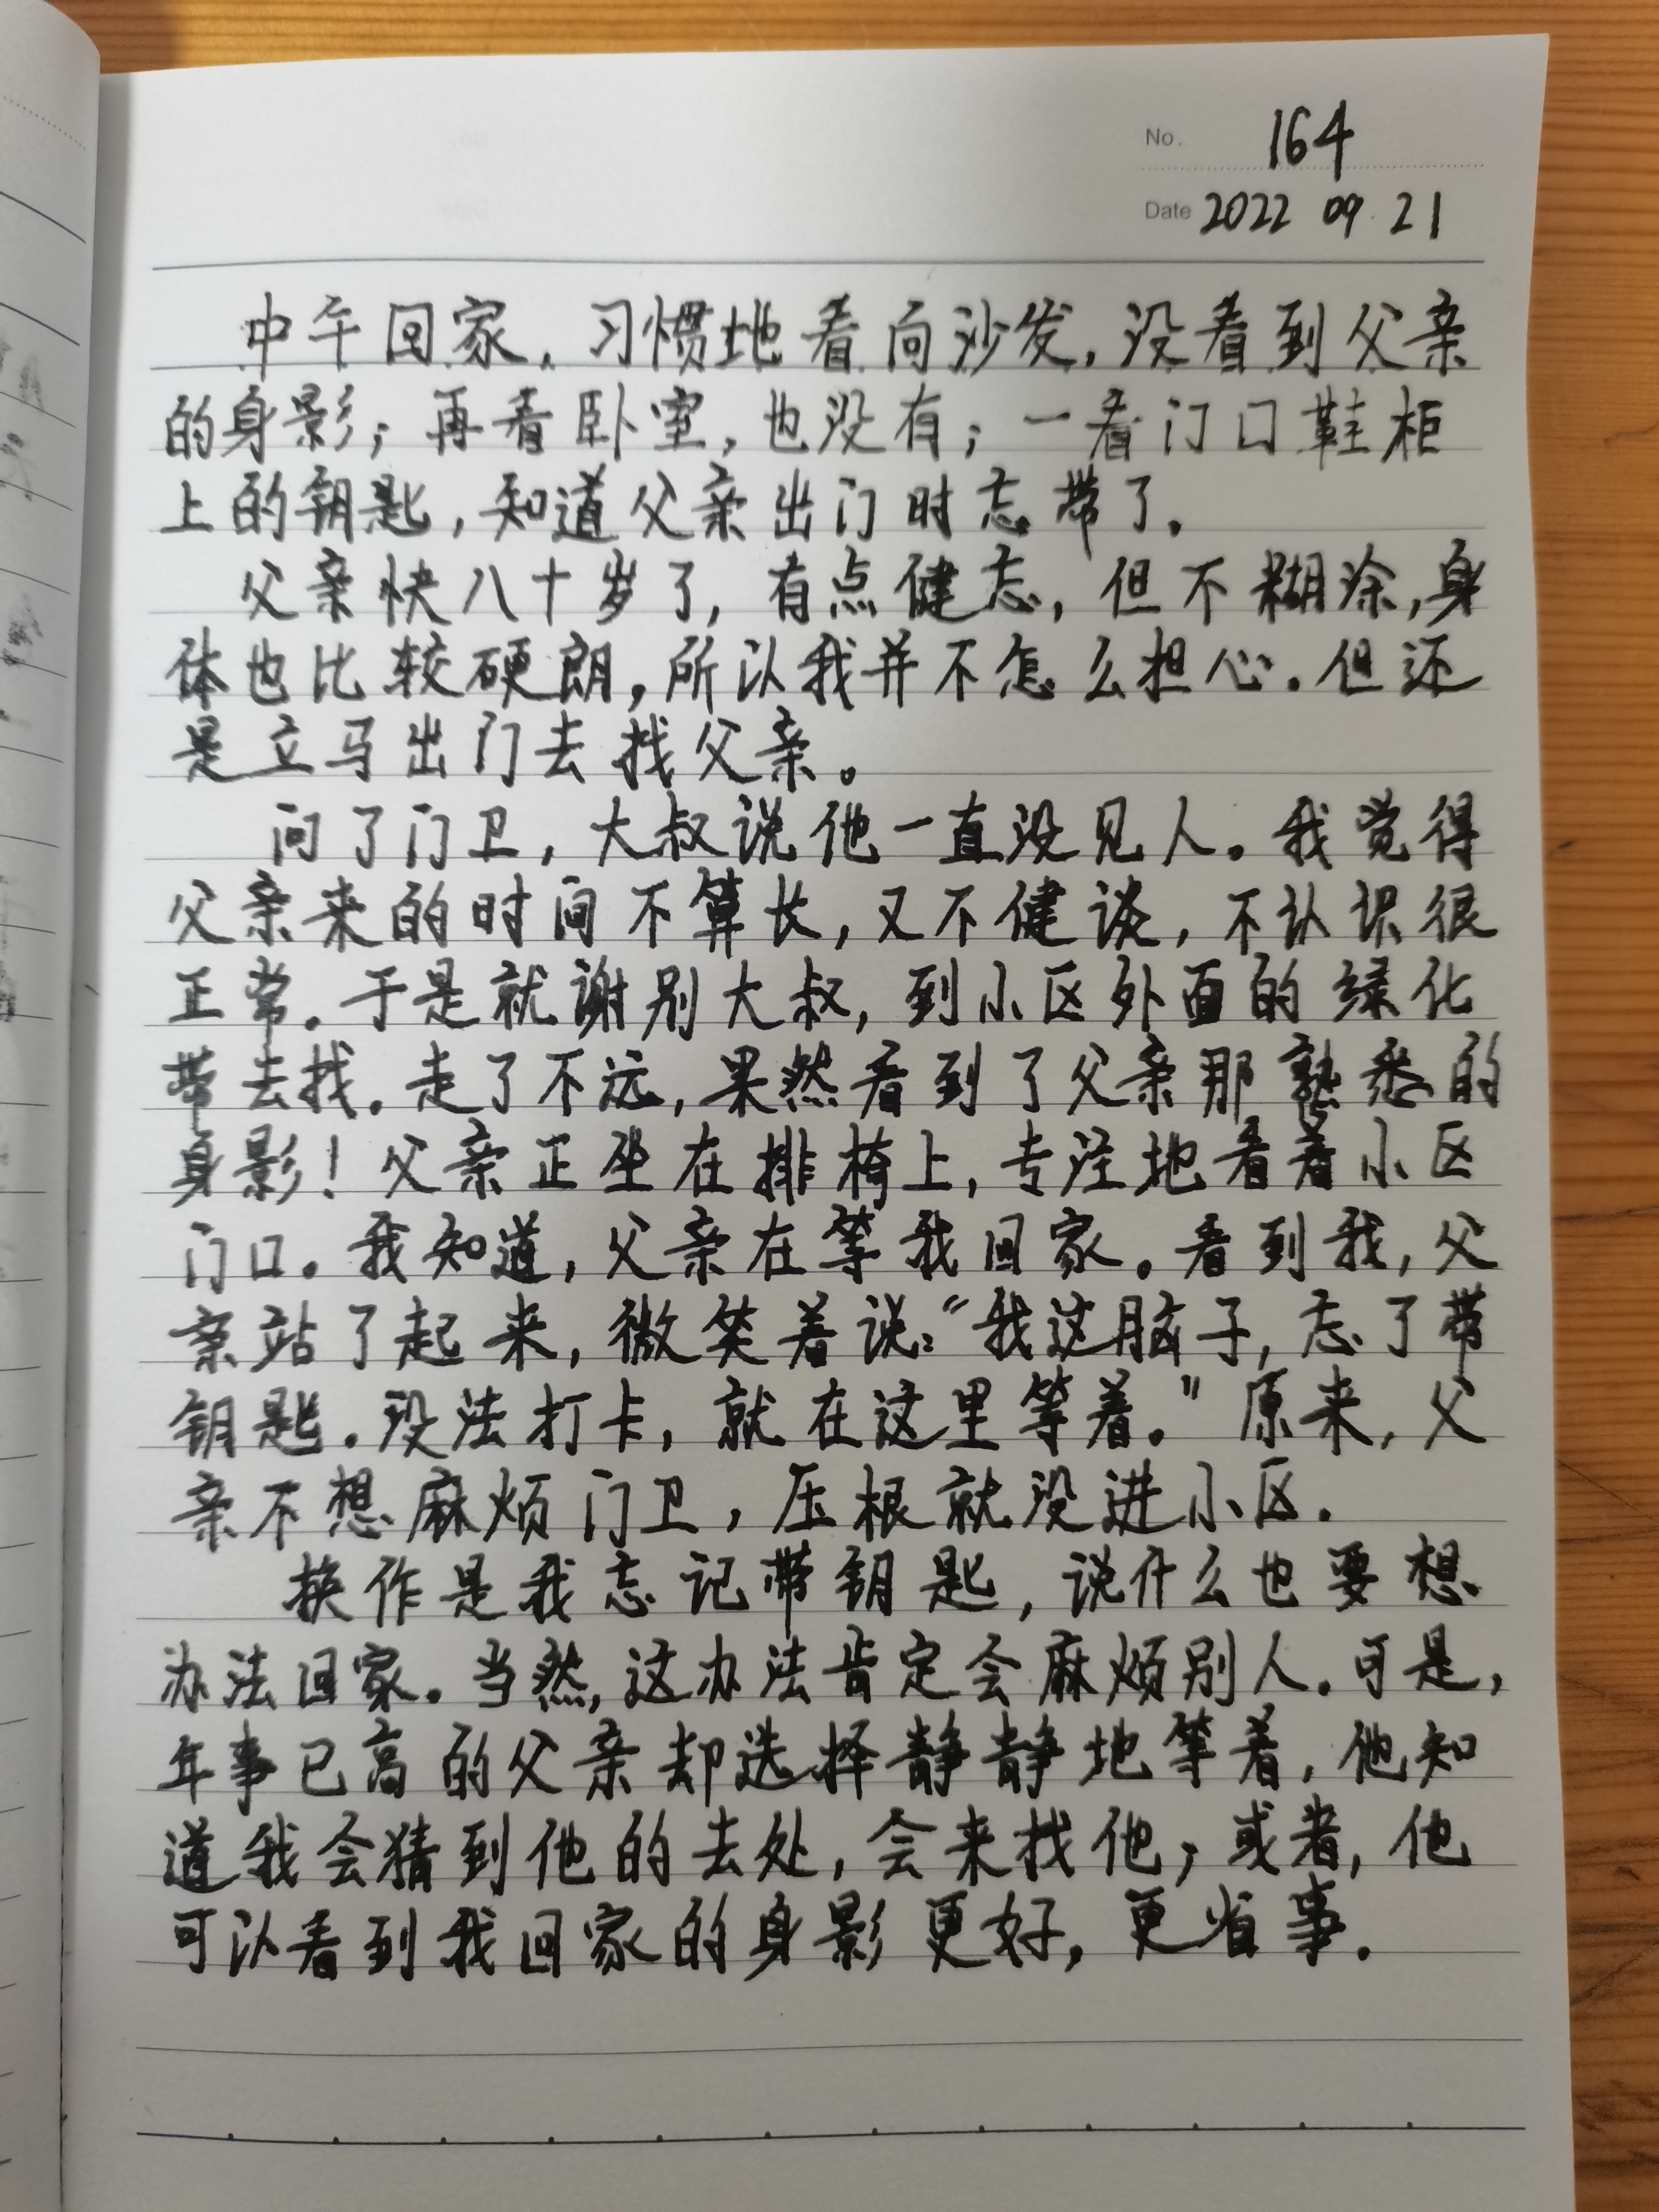 No. 164
Date 2022 09 21
中午回家，习惯地看向沙发，没看到父亲
的身影；再看卧室，也没有；一看门口鞋柜
上的钥匙，知道父亲出门时忘带了。
父亲快八十岁了，有点健忘，但不糊涂，身
体也比较硬朗，所以我并不怎么担心。但还
是立马出门去找父亲。
问了门卫，大叔说他一直没见人。我觉得
父亲来的时间不算长，又不健谈，不认识很
正常。于是就谢别大叔，到小区外面的绿化
带去找。走了不远，果然看到了父亲那熟悉的
身影！父亲正坐在排椅上，专注地看着小区
门口。我知道，父亲在等我回家。看到我，父
亲站了起来，微笑着说：“我这脑子，忘了带
钥匙。没法打卡，就在这里等着。”原来，父
亲不想麻烦门卫，压根就没进小区。
换作是我忘记带钥匙，说什么也要想
办法回家。当然，这办法肯定会麻烦别人。可是，
年事已高的父亲却选择静静地等着，他知
道我会猜到他的去处，会来找他；或者，他
可以看到我回家的身影更好，更省事。